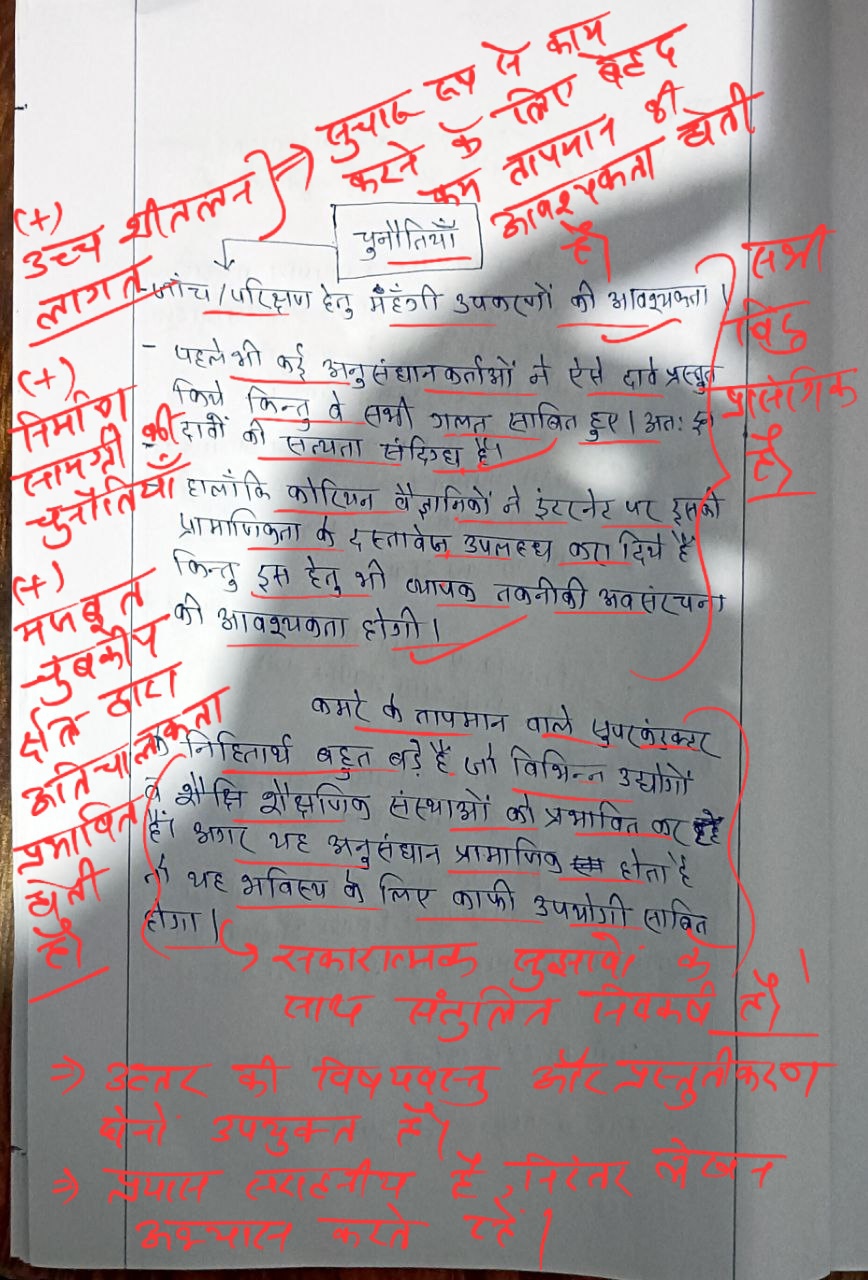 (+)
उच्च शीतलन
लागत
⇒ सुचारू रूप से काम
करने के लिए बेहद
कम तापमान की
आवश्यकता होती
है।
चुनौतियाँ
- जाँच / परिक्षण हेतु मँहगी उपकरणों की आवश्यकता।
- पहले भी कई अनुसंधानकर्ताओं ने ऐसे दावे प्रस्तुत
किये किन्तु वे सभी गलत साबित हुए। अतः इन
दावों की सत्यता संदिग्ध है।
- हालाँकि कोरियन वैज्ञानिकों ने इंटरनेट पर इसकी
प्रामाणिकता के दस्तावेज उपलब्ध करा दिये हैं
किन्तु इस हेतु भी व्यापक तकनीकी अवसंरचना
की आवश्यकता होगी।
सभी
बिंदु
प्रासंगिक
है।
(+)
निर्माण
सामग्री की
चुनौतियाँ
(+)
मजबूत
चुंबकीय
क्षेत्र द्वारा
अतिचालकता
प्रभावित
होती
है।
कमरे के तापमान वाले सुपरकंडक्टर
के निहितार्थ बहुत बड़े हैं जो विभिन्न उद्योगों
व शैक्षणिक संस्थाओं को प्रभावित कर
हैं। अगर यह अनुसंधान प्रामाणिक होता है
तो यह भविष्य के लिए काफी उपयोगी साबित
होगा।
सकारात्मक सुझावों के
साथ संतुलित निष्कर्ष है।
⇒ उत्तर की विषयवस्तु और प्रस्तुतीकरण
दोनों उपयुक्त हैं।
⇒ प्रयास सराहनीय है, निरंतर लेखन
अभ्यास करते रहें।